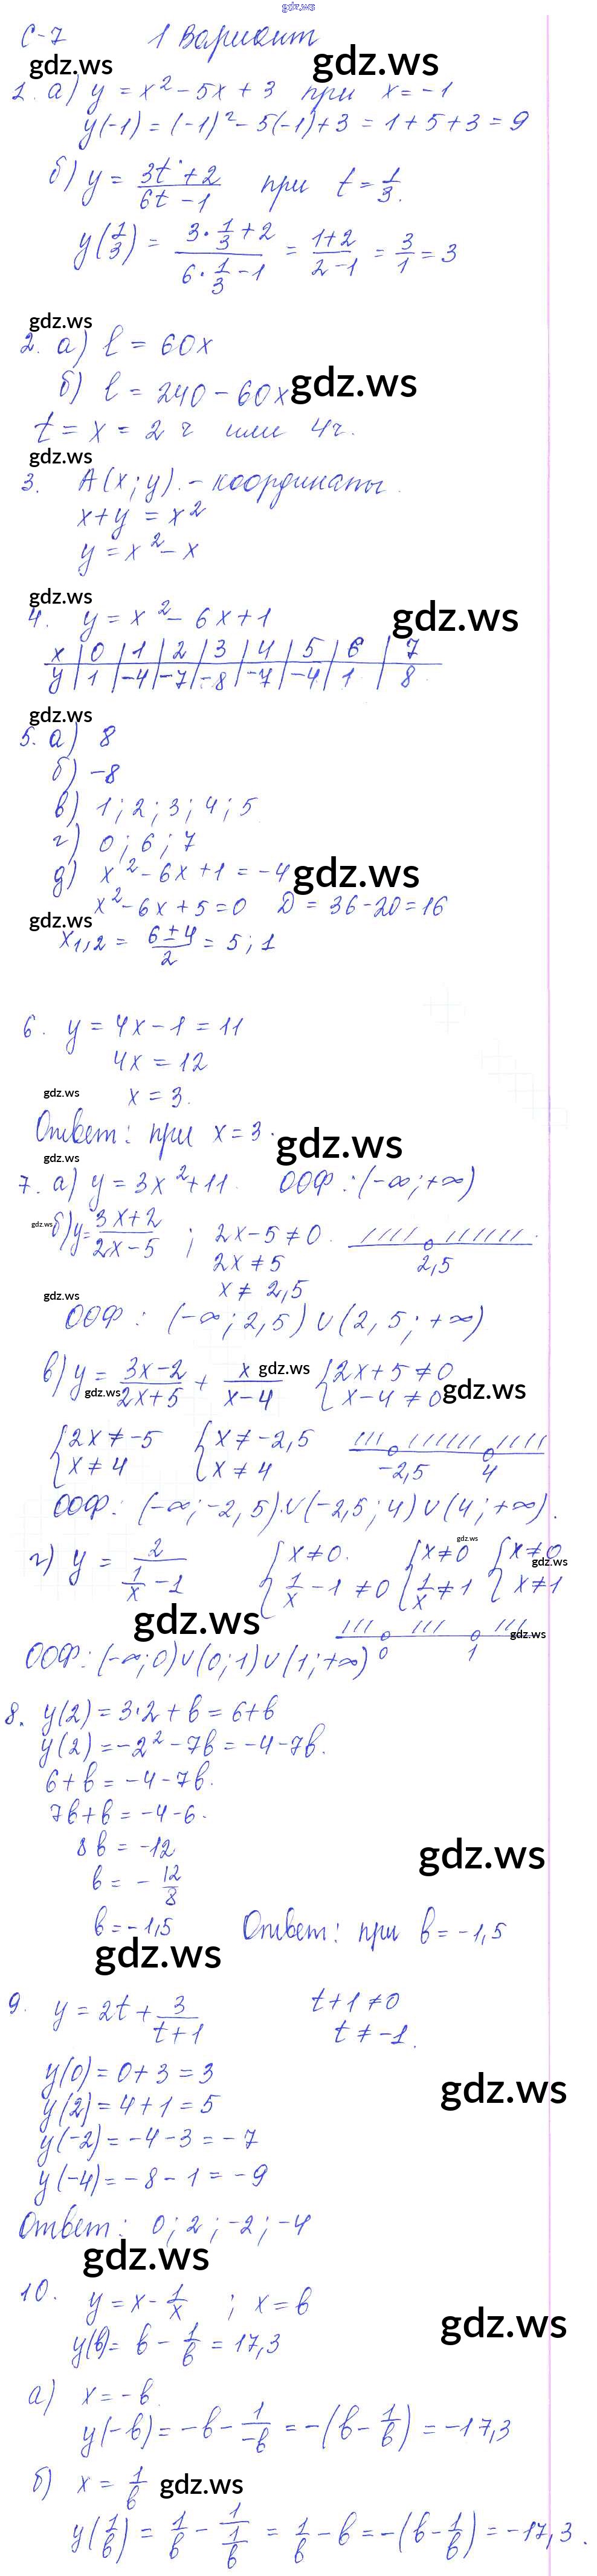 gdz.ws
С-7 1 Вариант
gdz.ws gdz.ws
1. а) y = x² - 5x + 3 при x = -1
y(-1) = (-1)² - 5(-1) + 3 = 1 + 5 + 3 = 9
б) y = (3t + 2)/(6t - 1) при t = 1/3.
y(1/3) = (3·1/3 + 2)/(6·1/3 - 1) = (1+2)/(2-1) = 3/1 = 3
gdz.ws
2. а) l = 60x
б) l = 240 - 60x gdz.ws
t = x = 2 ч или 4ч.
gdz.ws
3. A(x; y) - координаты.
x + y = x²
y = x² - x
gdz.ws gdz.ws
4. y = x² - 6x + 1
x | 0 | 1 | 2 | 3 | 4 | 5 | 6 | 7
y | 1 | -4 | -7 | -8 | -7 | -4 | 1 | 8
gdz.ws
5. а) 8
б) -8
в) 1; 2; 3; 4; 5
г) 0; 6; 7
д) x² - 6x + 1 = -4 gdz.ws
x² - 6x + 5 = 0 D = 36 - 20 = 16
gdz.ws
x1,2 = (6 ± 4)/2 = 5; 1
6. y = 4x - 1 = 11
4x = 12
gdz.ws
x = 3.
Ответ: при x = 3. gdz.ws
gdz.ws
7. а) y = 3x² + 11. ООФ: (-∞; +∞)
gdz.ws б) y = (3x + 2)/(2x - 5) ; 2x - 5 ≠ 0. 2,5
2x ≠ 5
x ≠ 2,5
gdz.ws
ООФ: (-∞; 2,5) ∪ (2,5; +∞)
в) y = (3x - 2)/(2x + 5) + x/(x - 4) gdz.ws { 2x + 5 ≠ 0
gdz.ws { x - 4 ≠ 0 gdz.ws
{ 2x ≠ -5 { x ≠ -2,5
{ x ≠ 4 { x ≠ 4 -2,5 4
ООФ: (-∞; -2,5) ∪ (-2,5; 4) ∪ (4; +∞).
gdz.ws
г) y = 2/(1/x - 1) { x ≠ 0. { x ≠ 0 { x ≠ 0 gdz.ws
{ 1/x - 1 ≠ 0 { 1/x ≠ 1 { x ≠ 1
gdz.ws gdz.ws
ООФ: (-∞; 0) ∪ (0; 1) ∪ (1; +∞) 0 1
8. y(2) = 3·2 + b = 6 + b
y(2) = -2² - 7b = -4 - 7b.
6 + b = -4 - 7b.
7b + b = -4 - 6.
8b = -12
gdz.ws
b = - 12/8
b = -1,5 Ответ: при b = -1,5
gdz.ws
9. y = 2t + 3/(t + 1) t + 1 ≠ 0
t ≠ -1.
y(0) = 0 + 3 = 3
gdz.ws
y(2) = 4 + 1 = 5
y(-2) = -4 - 3 = -7
y(-4) = -8 - 1 = -9
Ответ: 0; 2; -2; -4
gdz.ws
10. y = x - 1/x ; x = b
gdz.ws
y(b) = b - 1/b = 17,3
а) x = -b.
y(-b) = -b - 1/-b = -(b - 1/b) = -17,3
б) x = 1/b gdz.ws
y(1/b) = 1/b - 1/(1/b) = 1/b - b = -(b - 1/b) = -17,3.